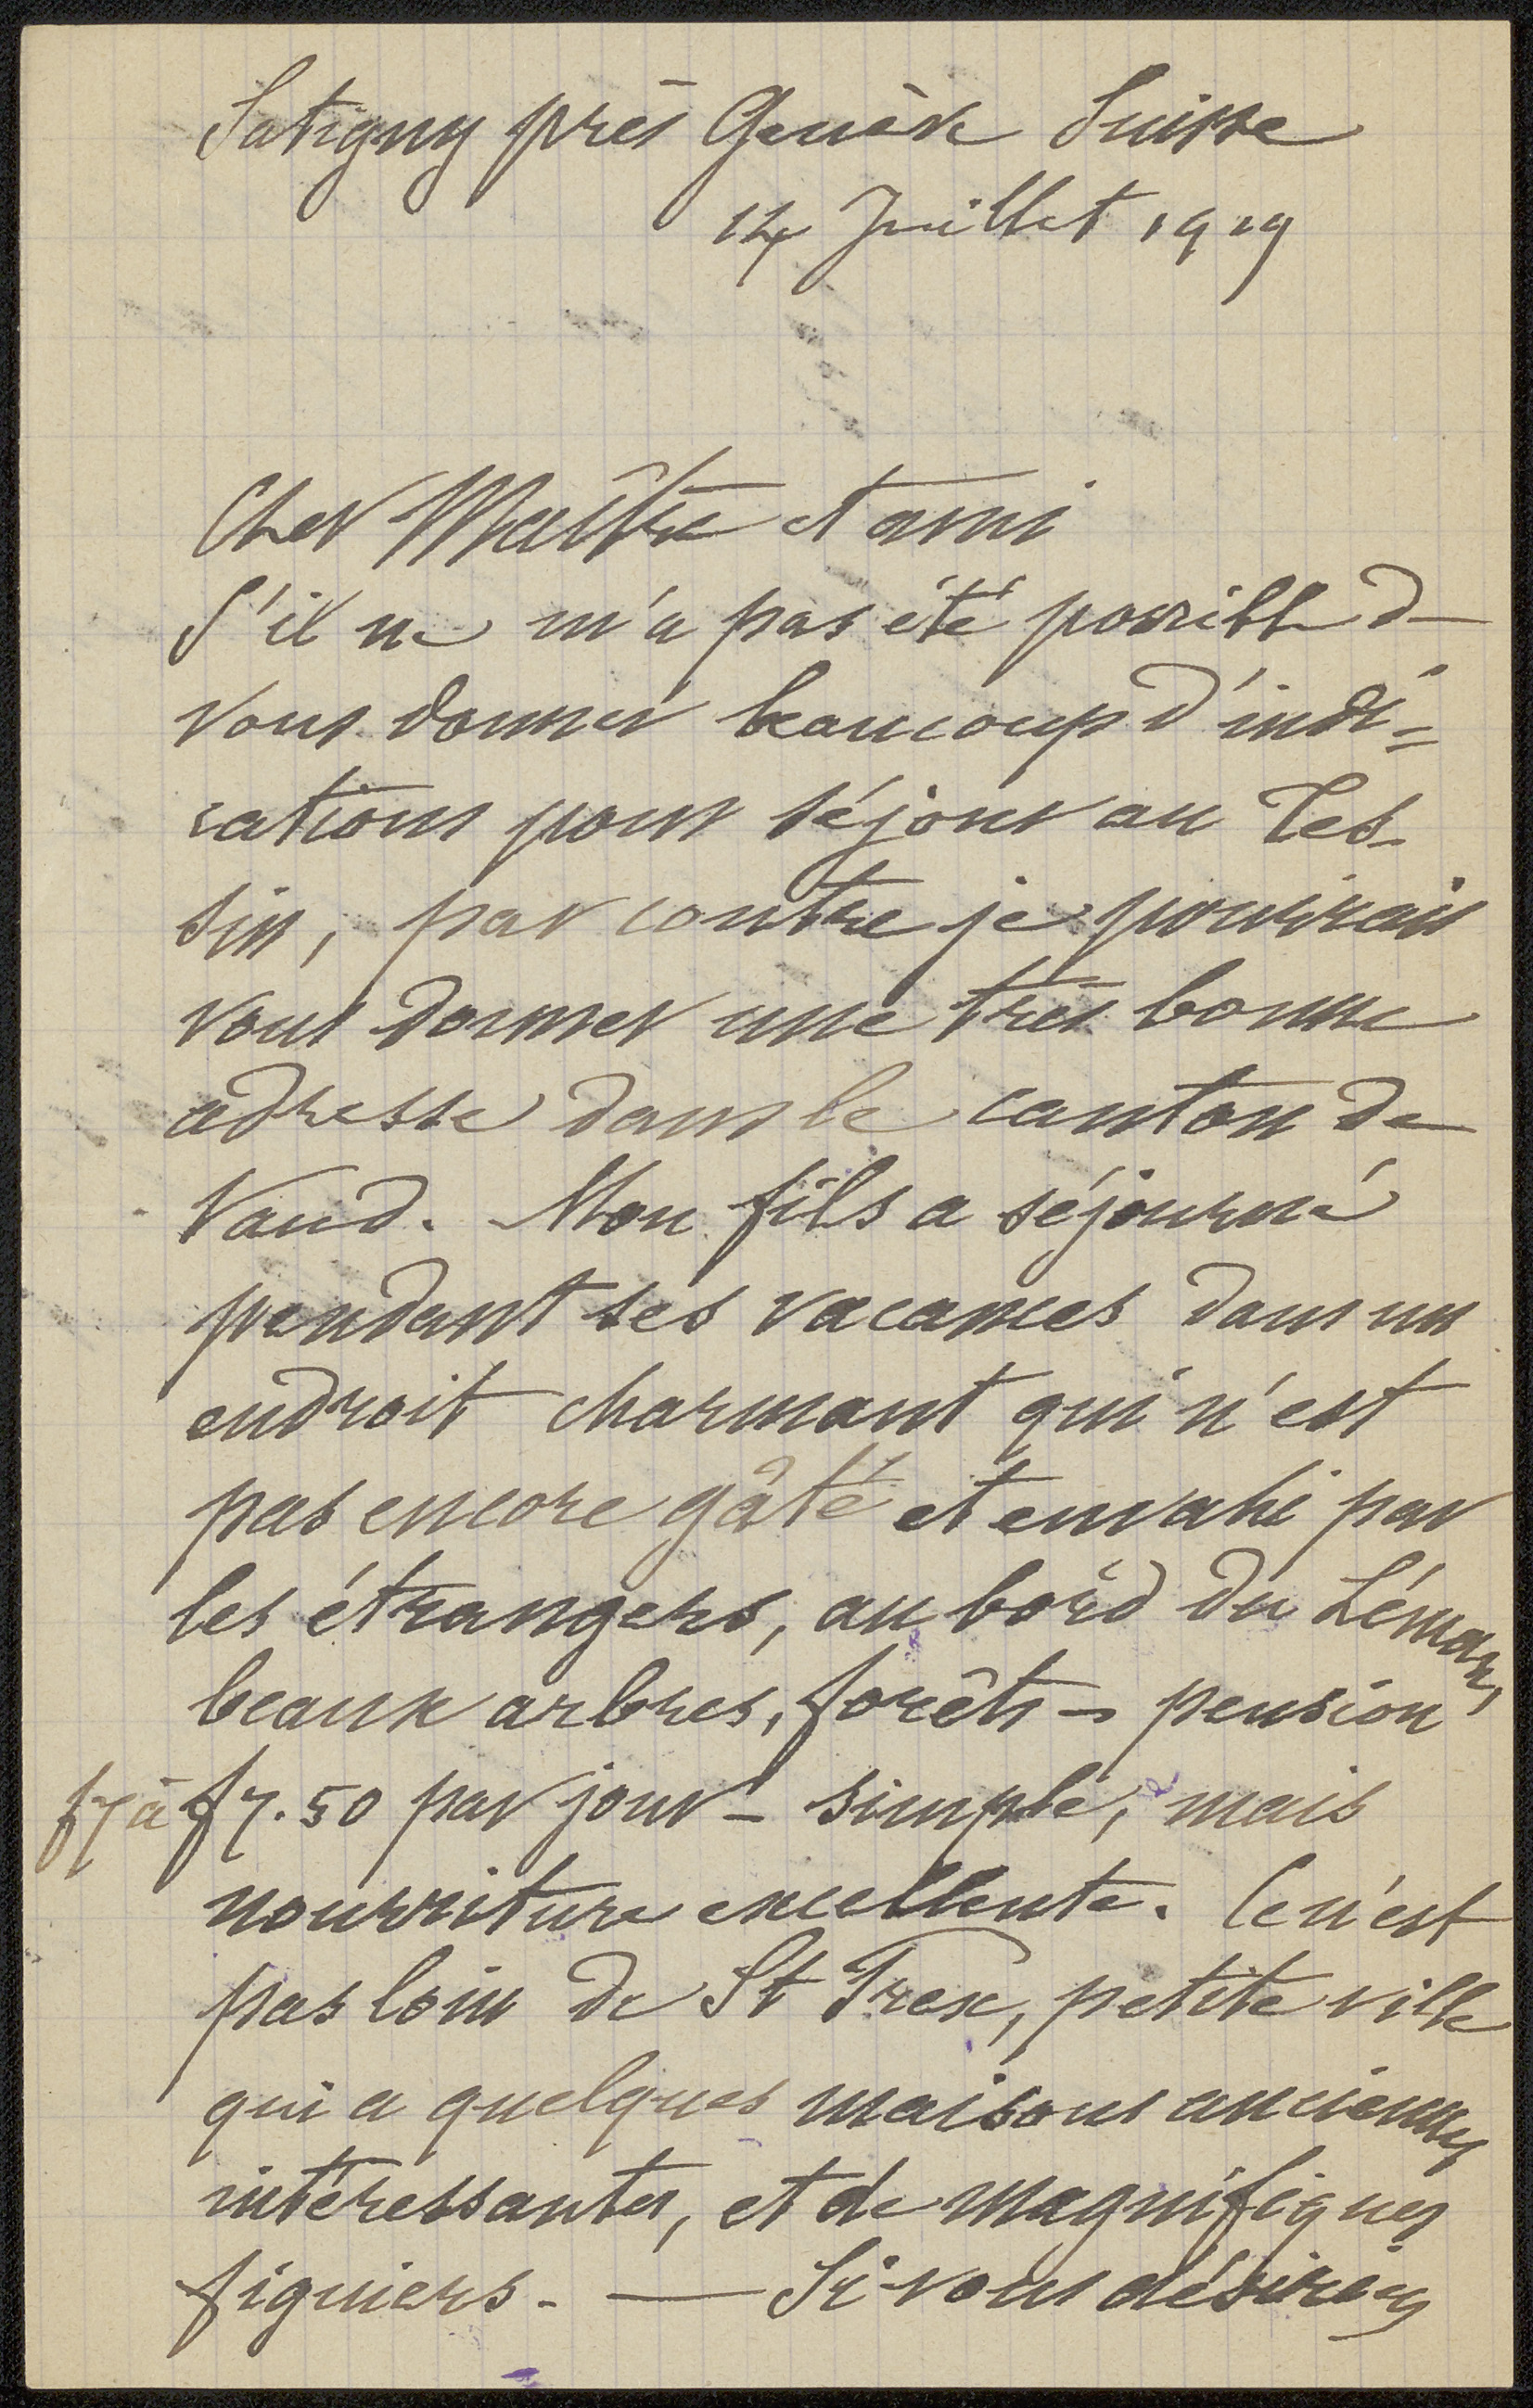 Satigny près Genève Suisse
14 Juillet 1919
Cher Maître et ami
S'il ne m'a pas été possible de
vous donner beaucoup d'indi=
cations pour séjour au Tes-
sin, par contre je pourrais
vous donner une très bonne
adresse dans le canton de
Vaud. Mon fils a séjourné
pendant ses vacances dans un
endroit charmant qui n'est
pas encore gâté et envahi par
les étrangers, au bord du Léman,
beaux arbres, forêts – pension
f 7 à f 7.50 par jour – simple, mais
nourriture excellente. Ce n'est
pas loin de St Prex, petite ville
qui a quelques maisons anciennes
intéressantes, et de magnifiques
figuiers. — Si vous désiriez